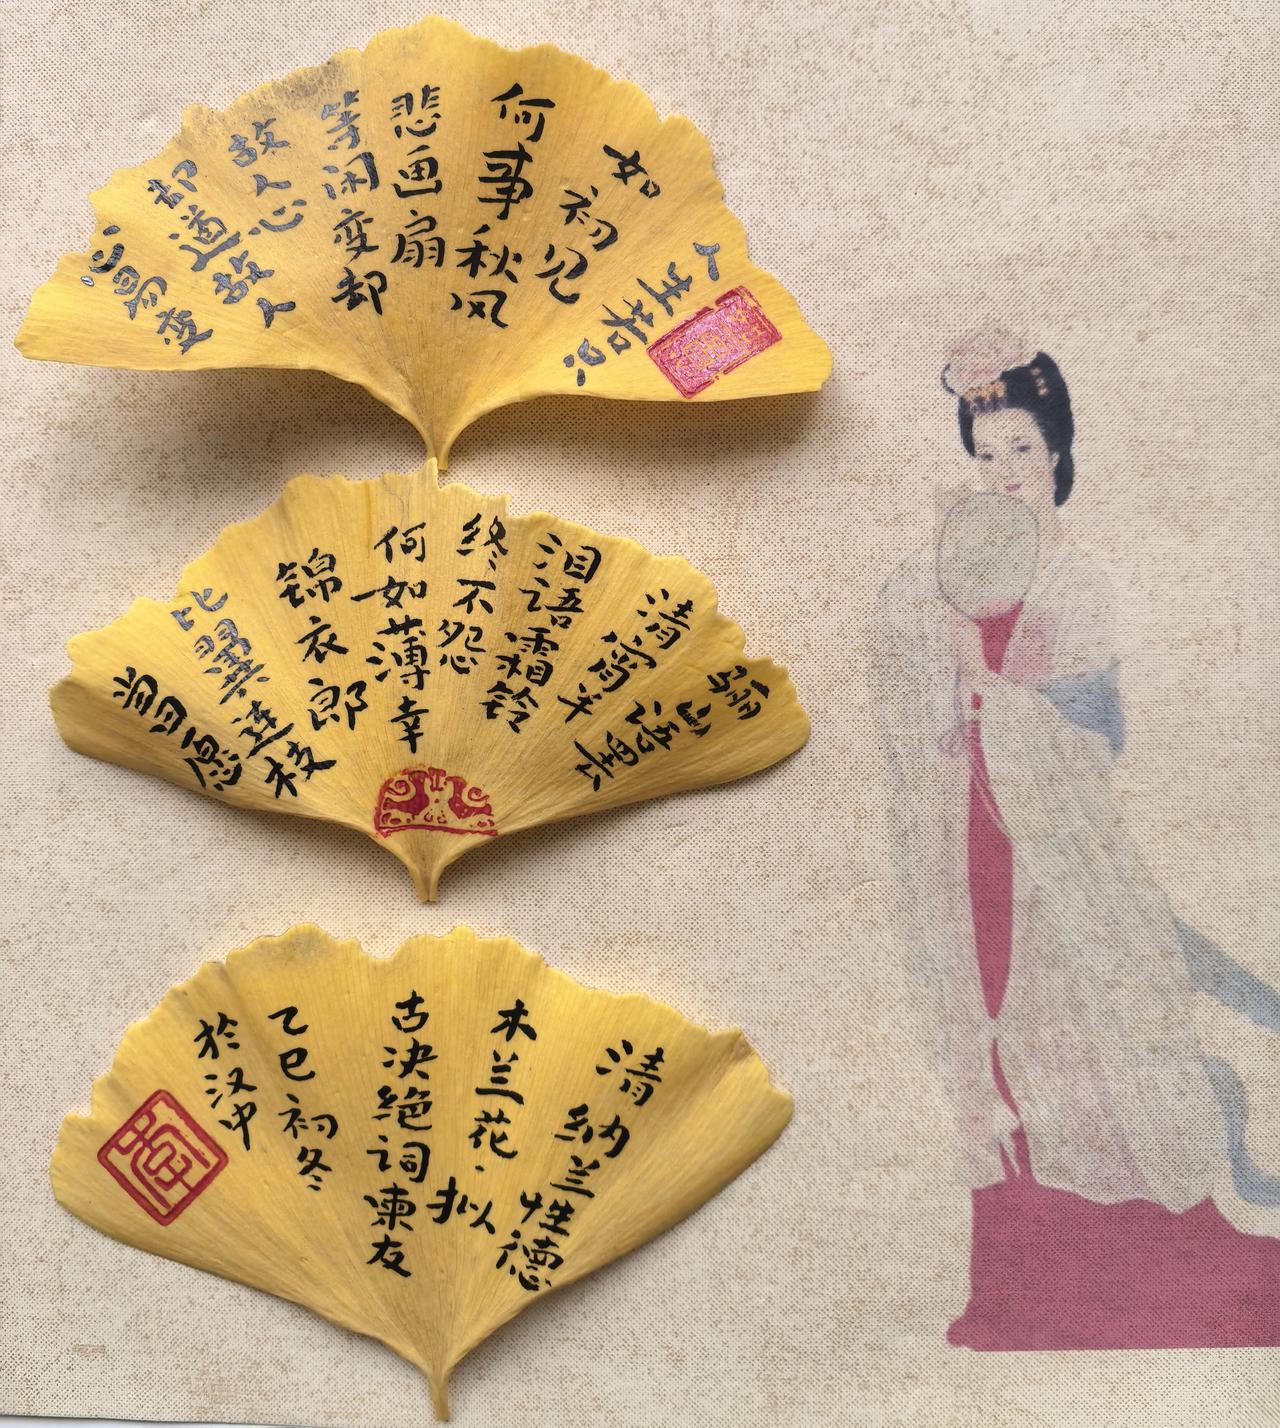 人生若只
如初见
何事秋风
悲画扇
等闲变却
故人心
却道故人
心易变
骊山语罢
清宵半
泪语霜铃
終不怨
何如薄幸
锦衣郎
比翼連枝
当日愿
清
納兰性德
木兰花·拟
古决絶词柬友
乙巳初冬
於汉中